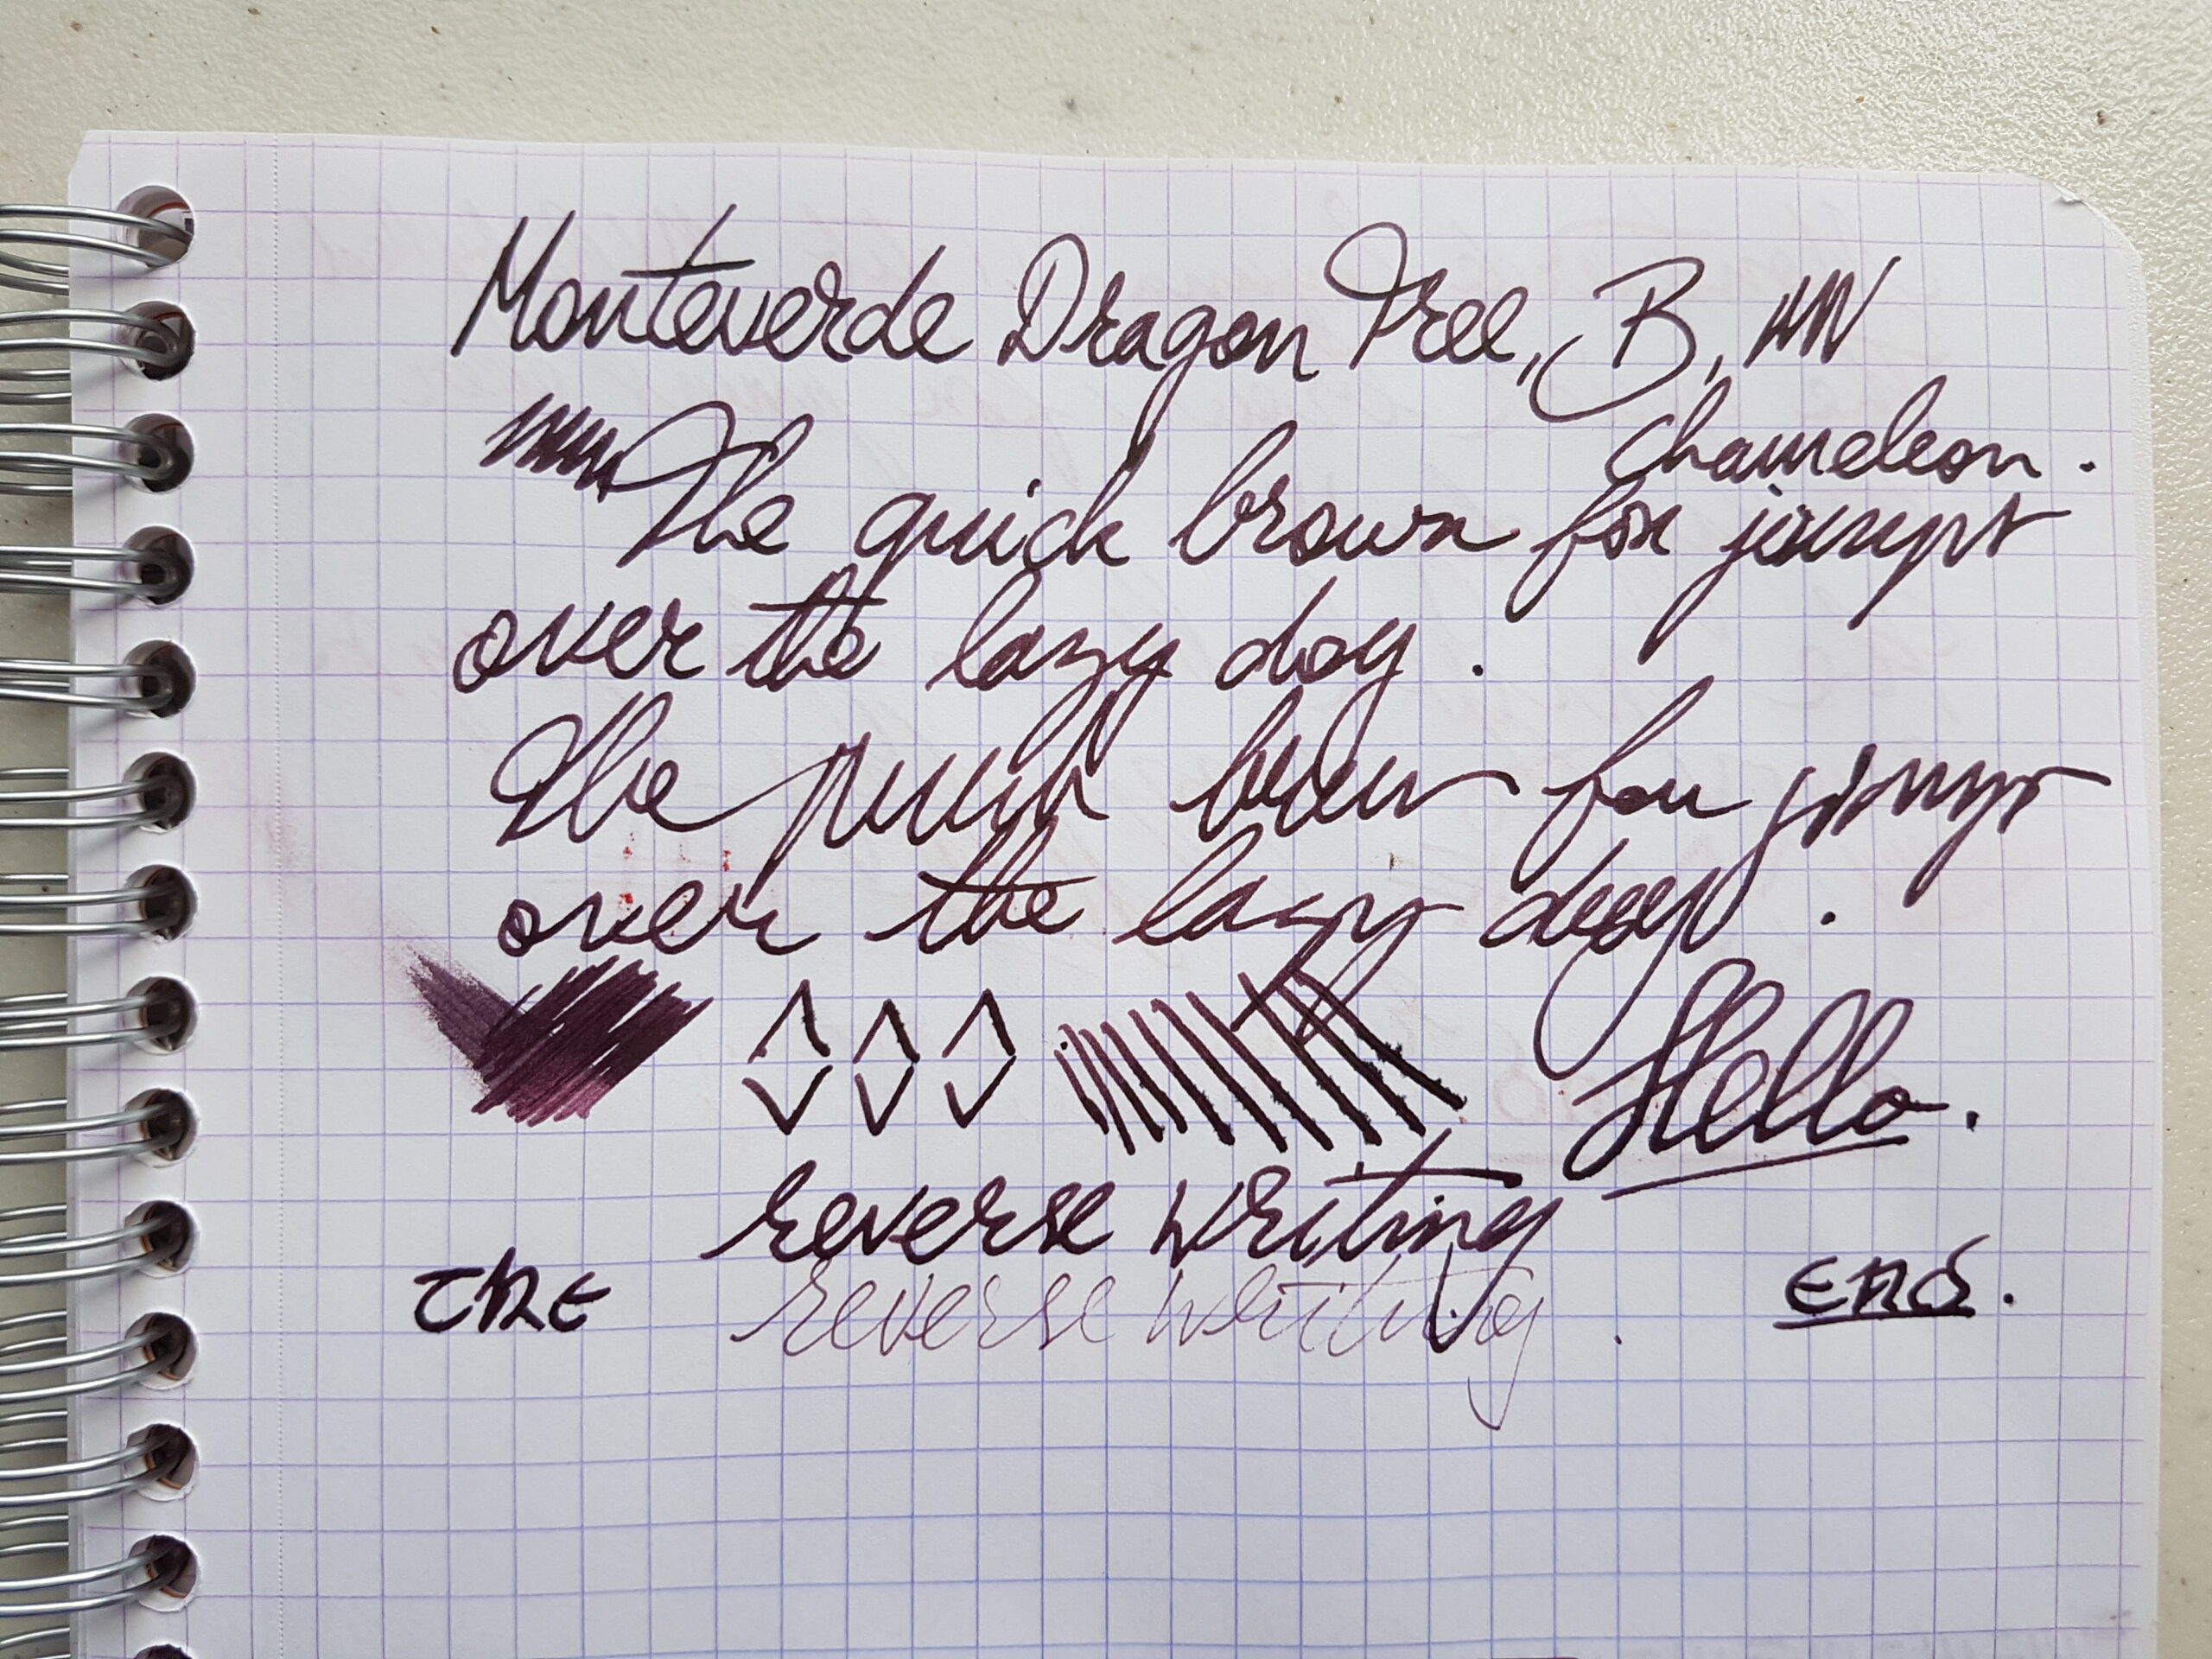 Monteverde Dragon Tree, B, HN
chameleon.
The quick brown fox jumpt
over the lazy dog.
The quick brown fox jumpt
over the lazy dog.
Hello.
reverse writing
The reverse writing. End.